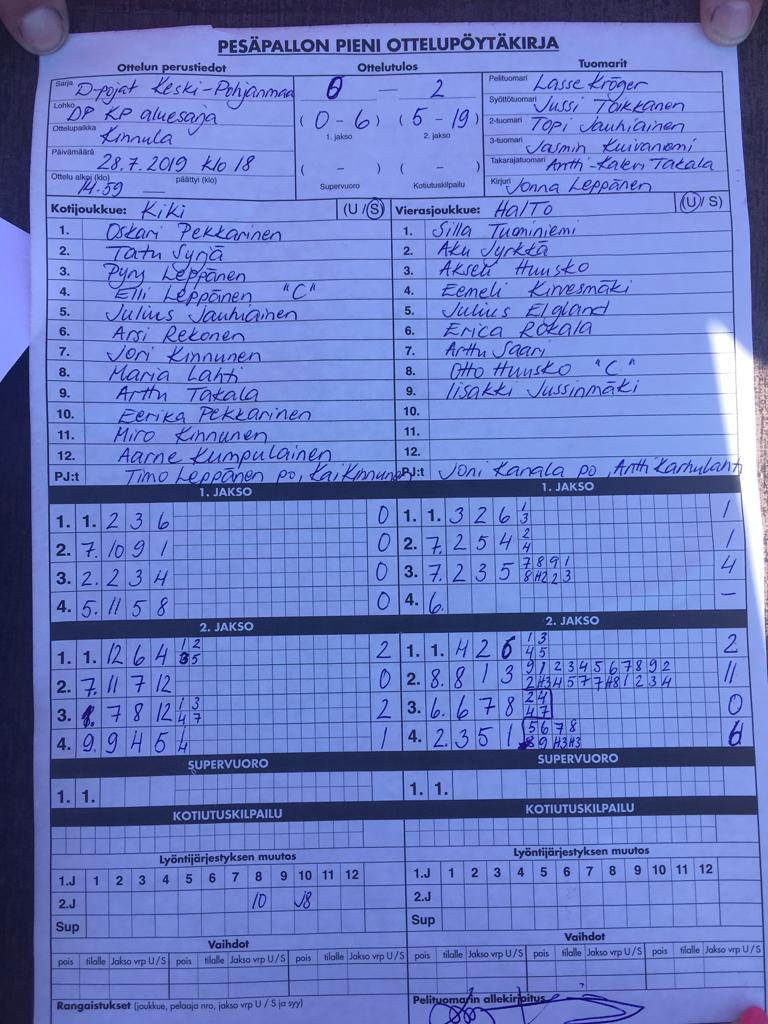 PESÄPALLON PIENI OTTELUPÖYTÄKIRJA
Ottelun perustiedot Ottelutulos Tuomarit
Sarja D-pojat Keski-Pohjanmaa
Lohko DP KP aluesarja
Ottelupaikka Kinnula
Päivämäärä 28.7.2019 klo 18
Ottelu alkoi (klo) 14.59 päättyi (klo)
0 — 2
(0 - 6) (5 - 19)
1. jakso 2. jakso
( - ) ( - )
Supervuoro Kotiutuskilpailu
Pelituomari Lasse Kröger
Syöttötuomari Jussi Toikkanen
2-tuomari Topi Jauhiainen
3-tuomari Jasmin Kuivaniemi
Takarajatuomari Antti-Kaleri Takala
Kirjuri Jonna Leppänen
Kotijoukkue: Kiki (U / S)
1. Oskari Pekkarinen
2. Tatu Syrjä
3. Pyry Leppänen
4. Elli Leppänen "C"
5. Julius Jauhiainen
6. Arsi Rekonen
7. Jori Kinnunen
8. Maria Lahti
9. Arttu Takala
10. Eerika Pekkarinen
11. Miro Kinnunen
12. Aarne Kumpulainen
PJ:t Timo Leppänen po, Kai Kinnunen
Vierasjoukkue: HalTo (U / S)
1. Silla Tuominiemi
2. Aku Jyrkkä
3. Akseli Huusko
4. Eemeli Kirvesmäki
5. Julius Elgland
6. Erica Rokala
7. Arttu Saari
8. Otto Huusko "C"
9. Iisakki Jussinmäki
10.
11.
12.
PJ:t Joni Kanala po, Antti Karhulahti
1. JAKSO
1. 1. 2 3 6 0
2. 7. 10 9 1 0
3. 2. 2 3 4 0
4. 5. 11 5 8 0
1. JAKSO
1. 1. 3 2 6 1 3 1
2. 7. 2 5 4 2 4 1
3. 7. 2 3 5 7 8 9 1 4
8 H2 2 3
4. 6. –
2. JAKSO
1. 1. 12 6 4 1 2 2
3 5
2. 7. 11 7 12 0
3. 7 8 12 1 3 2
4 7
4. 9. 9 4 5 1
2. JAKSO
1. 1. 4 2 6 1 3 2
4 5
2. 8. 8 1 3 9 1 2 3 4 5 6 7 8 9 2 11
2 H3 4 5 7 7 H8 1 2 3 4
3. 6. 6 7 8 2 4 0
4 7
4. 2. 3 5 1 5 6 7 8
9 H3 H3
SUPERVUORO SUPERVUORO
1. 1. 1. 1.
KOTIUTUSKILPAILU KOTIUTUSKILPAILU
Lyöntijärjestyksen muutos
1.J 1 2 3 4 5 6 7 8 9 10 11 12
2.J 10 J8
Sup
Lyöntijärjestyksen muutos
1.J 1 2 3 4 5 6 7 8 9 10 11 12
2.J
Sup
Vaihdot
pois tilalle Jakso vrp U / S pois tilalle Jakso vrp U / S pois tilalle Jakso vrp U / S
Vaihdot
pois tilalle Jakso vrp U / S pois tilalle Jakso vrp U / S pois tilalle Jakso vrp U / S
Rangaistukset (joukkue, pelaaja nro, jakso vrp U / S ja syy)
Pelituomarin allekirjoitus